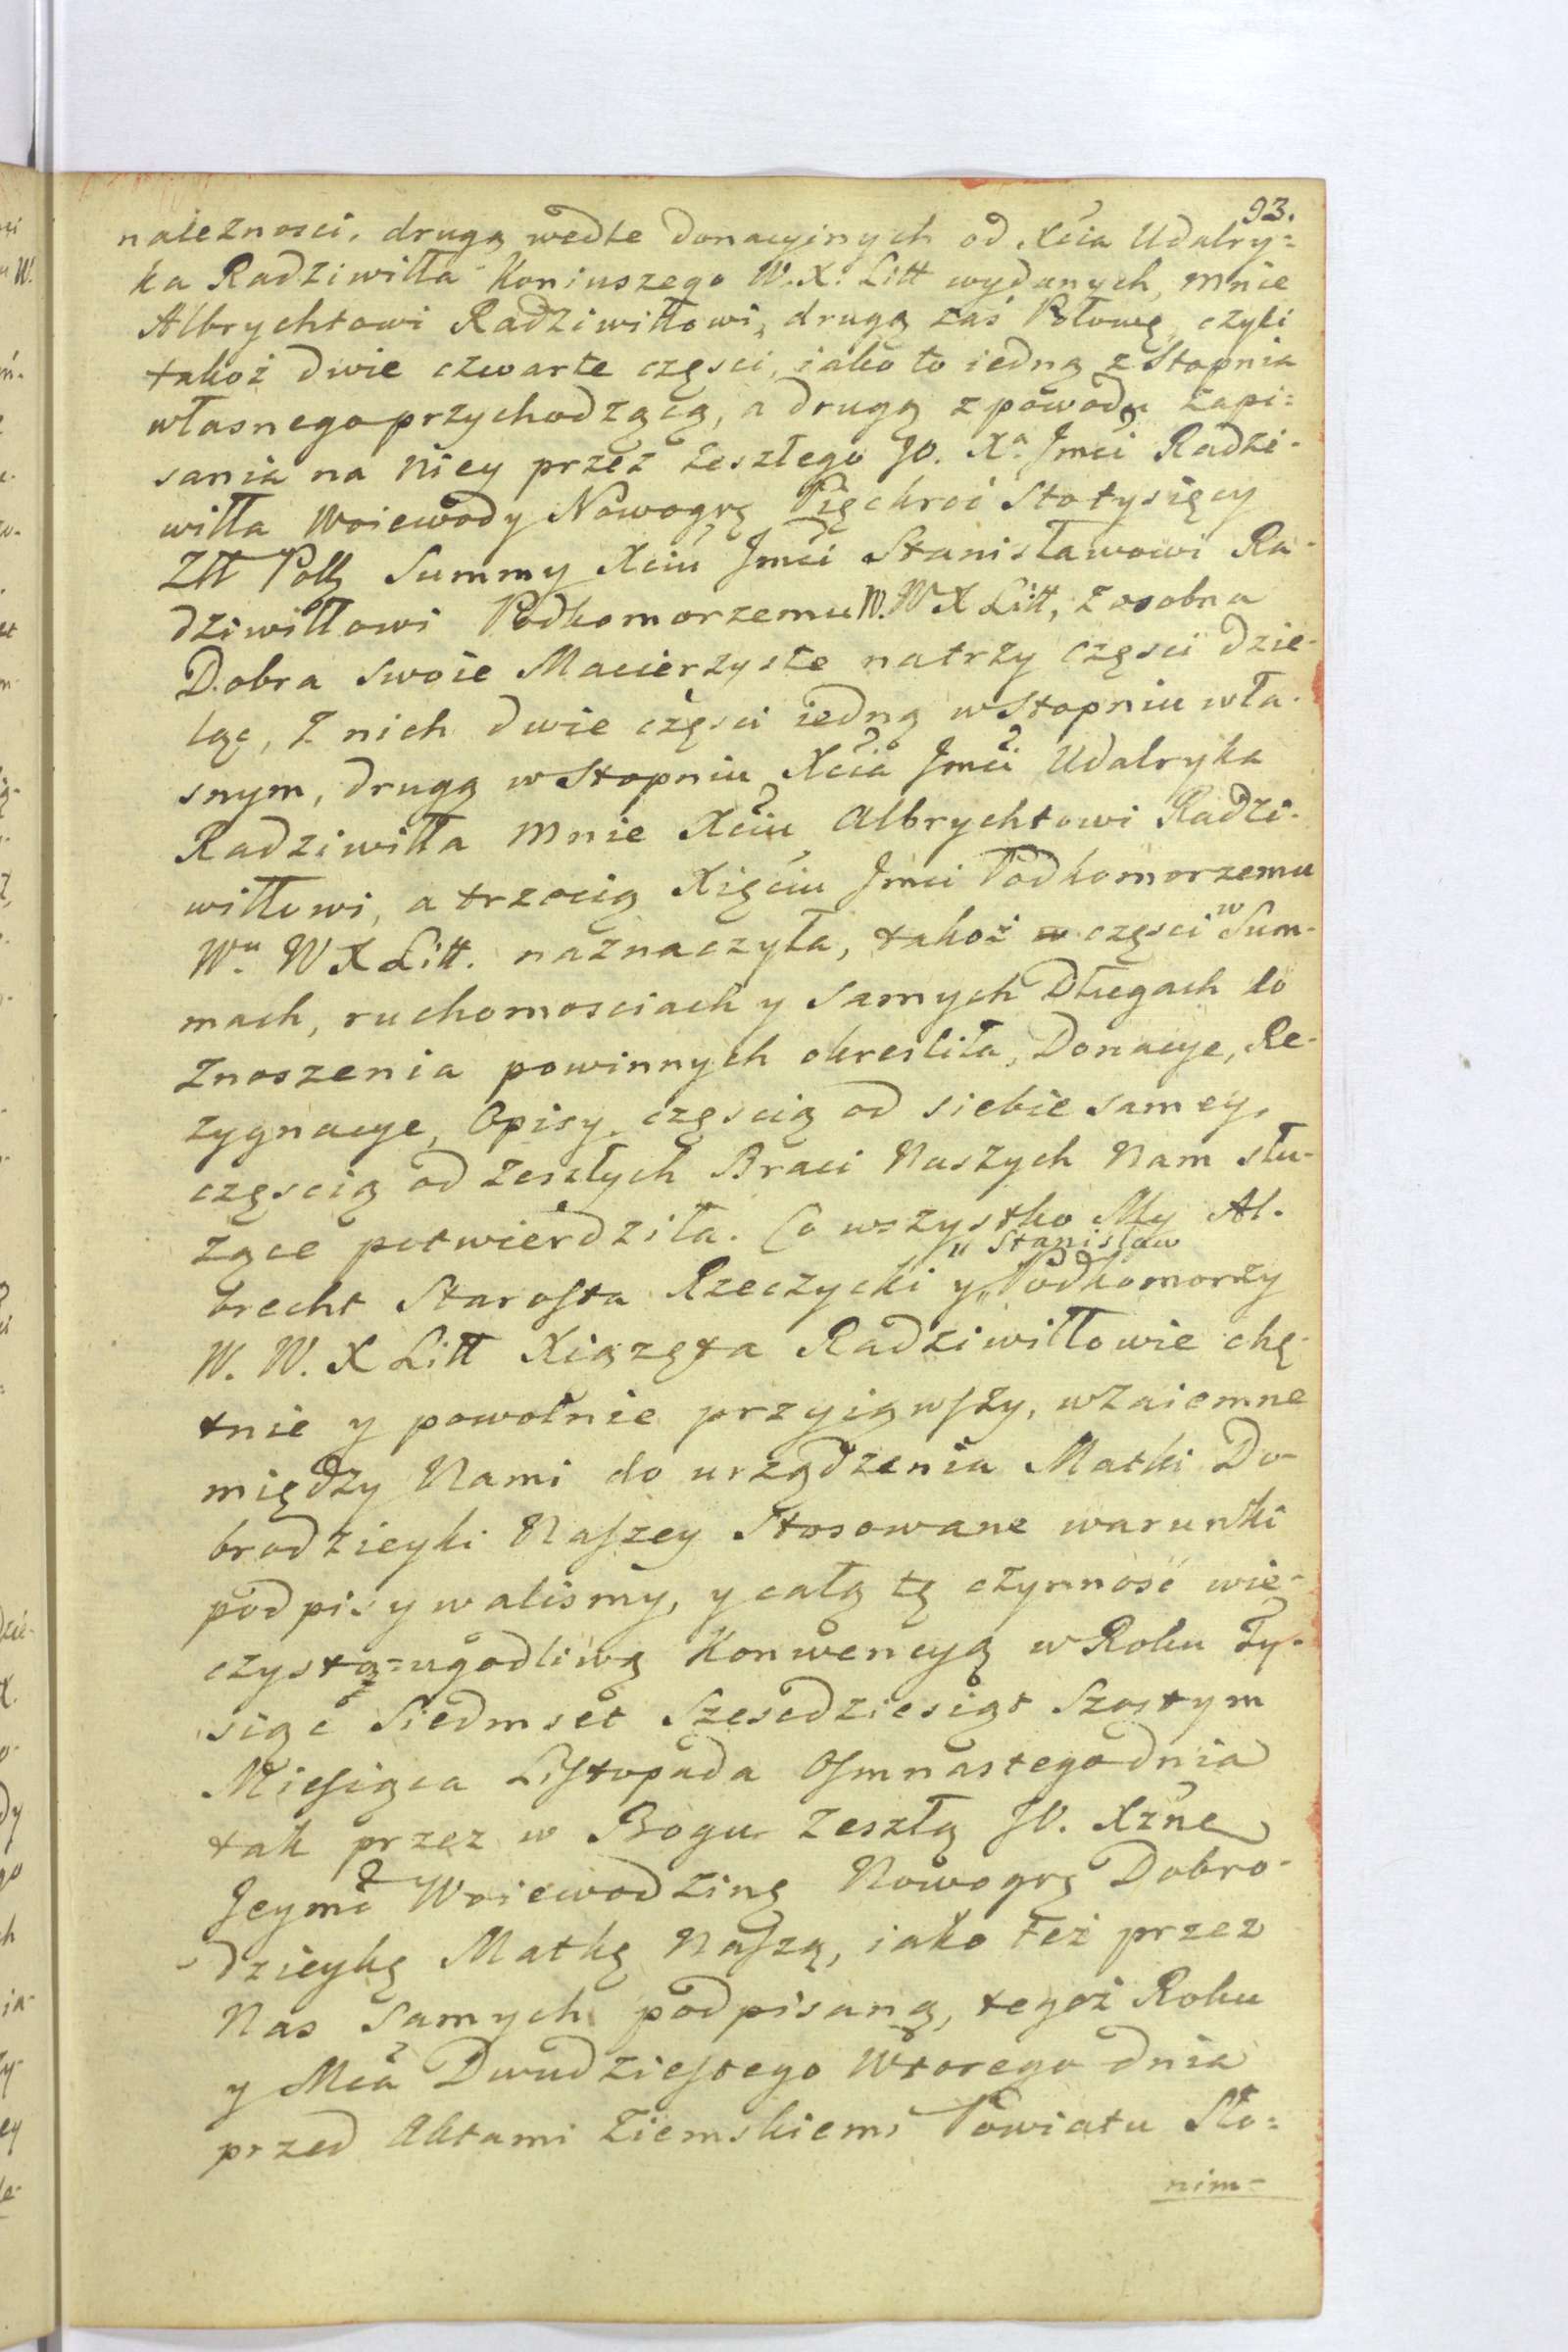 93.
należnosci, drugą wedle donacyinych od Xcia Udalry=
ka Radziwiłła Koniuszego W. X. Litt wydanych, mnie
Albrychtowi Radziwiłłowi, drugą zaś Połowę, czyli
takoż dwie czwarte częsci, iako to iedną z Stopnia
własnego przychodzącą, a drugą z powodu Zapi=
sania na Niey przez Zeszłego JO. Xa Jmci Radzi-
wiłła Woiewody Nowogrg Pięckroć Stotysięcy
Złł Pollg Summy Xciu Jmci Stanisławowi Ra-
dziwiłłowi Podkomorzemu W. W X Litt, Zosobna
Dobra swoie Macierzyste natrzy częsci dzie-
ląc, Z nich dwie częsci iedną w Stopniu wła-
snym, drugą w Stopniu Xcia Jmci Udalryka
Radziwiłła Mnie Xciu Albrychtowi Radzi-
wiłłowi, a trzecią Xięciu Jmci Podkomorzemu
Wu W X Litt. naznaczyła, takoż w częsci w Sum-
mach, ruchomosciach y Samych Długach do
Znoszenia powinnych okresliła, Donacye, Re-
zygnacye, Opisy, częscią od siebie samey,
częscią od Zeszłych Braci Naszych Nam słu-
żące potwierdziła. Co wszystko My Al-
brecht Starosta Rzeczycki y „ Stanisław Podkomorzy
W. W. X Litt Xiązęta Radziwiłłowie chę-
tnie y powolnie przyiąwszy, wzaiemne
między Nami do urządzenia Matki Do-
brodzieyki Naszey Stosowane warunki
podpisywalismy, y całą tę czynność wie-
czystą=ugodliwą Konwencyą w Roku Ty-
siąc Siedmset Szescdziesiąt Szostym
Miesiąca Listopada Osmnastego dnia
tak przez w Bogu Zeszłą JO. Xzne
Jeymć Woiewodzinę Nowogrg Dobro-
dzieykę Matkę Naszą, iako też przez
Nas Samych podpisaną, tegoż Roku
y Mca Dwudziestego Wtorego dnia
przed Aktami Ziemskiemi Powiatu Sło=
nim-